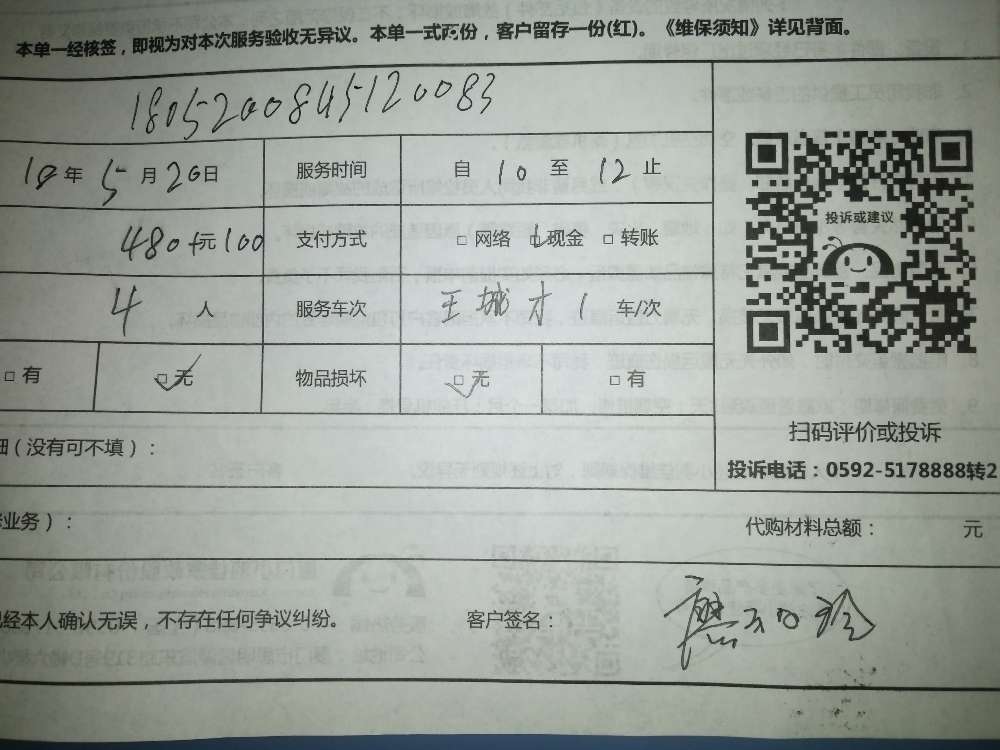 本单一经核签，即视为对本次服务验收无异议。本单一式两份，客户留存一份(红)。《维保须知》详见背面。
1805200845120083
18年5月20日 服务时间 自10至12止
投诉或建议
480+元100 支付方式 □网络 □现金 □转账
4人 服务车次 1车/次
□有 □无 物品损坏 □无 □有
扫码评价或投诉
(没有可不填)：
投诉电话：0592-5178888转2
业务)：
代购材料总额： 元
经本人确认无误，不存在任何争议纠纷。 客户签名：